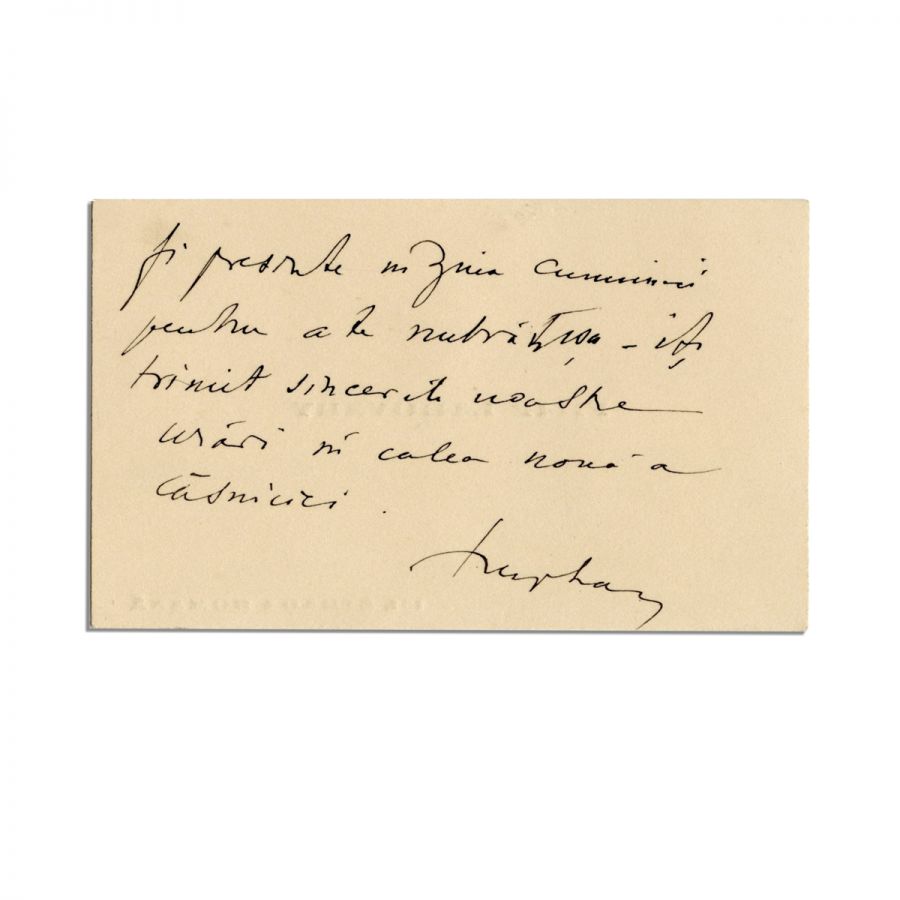 și presente în ziua cununiei
pentru a te îmbrățișa – îți
trimit sincerile noastre
urări în calea nouă a
căsniciei.